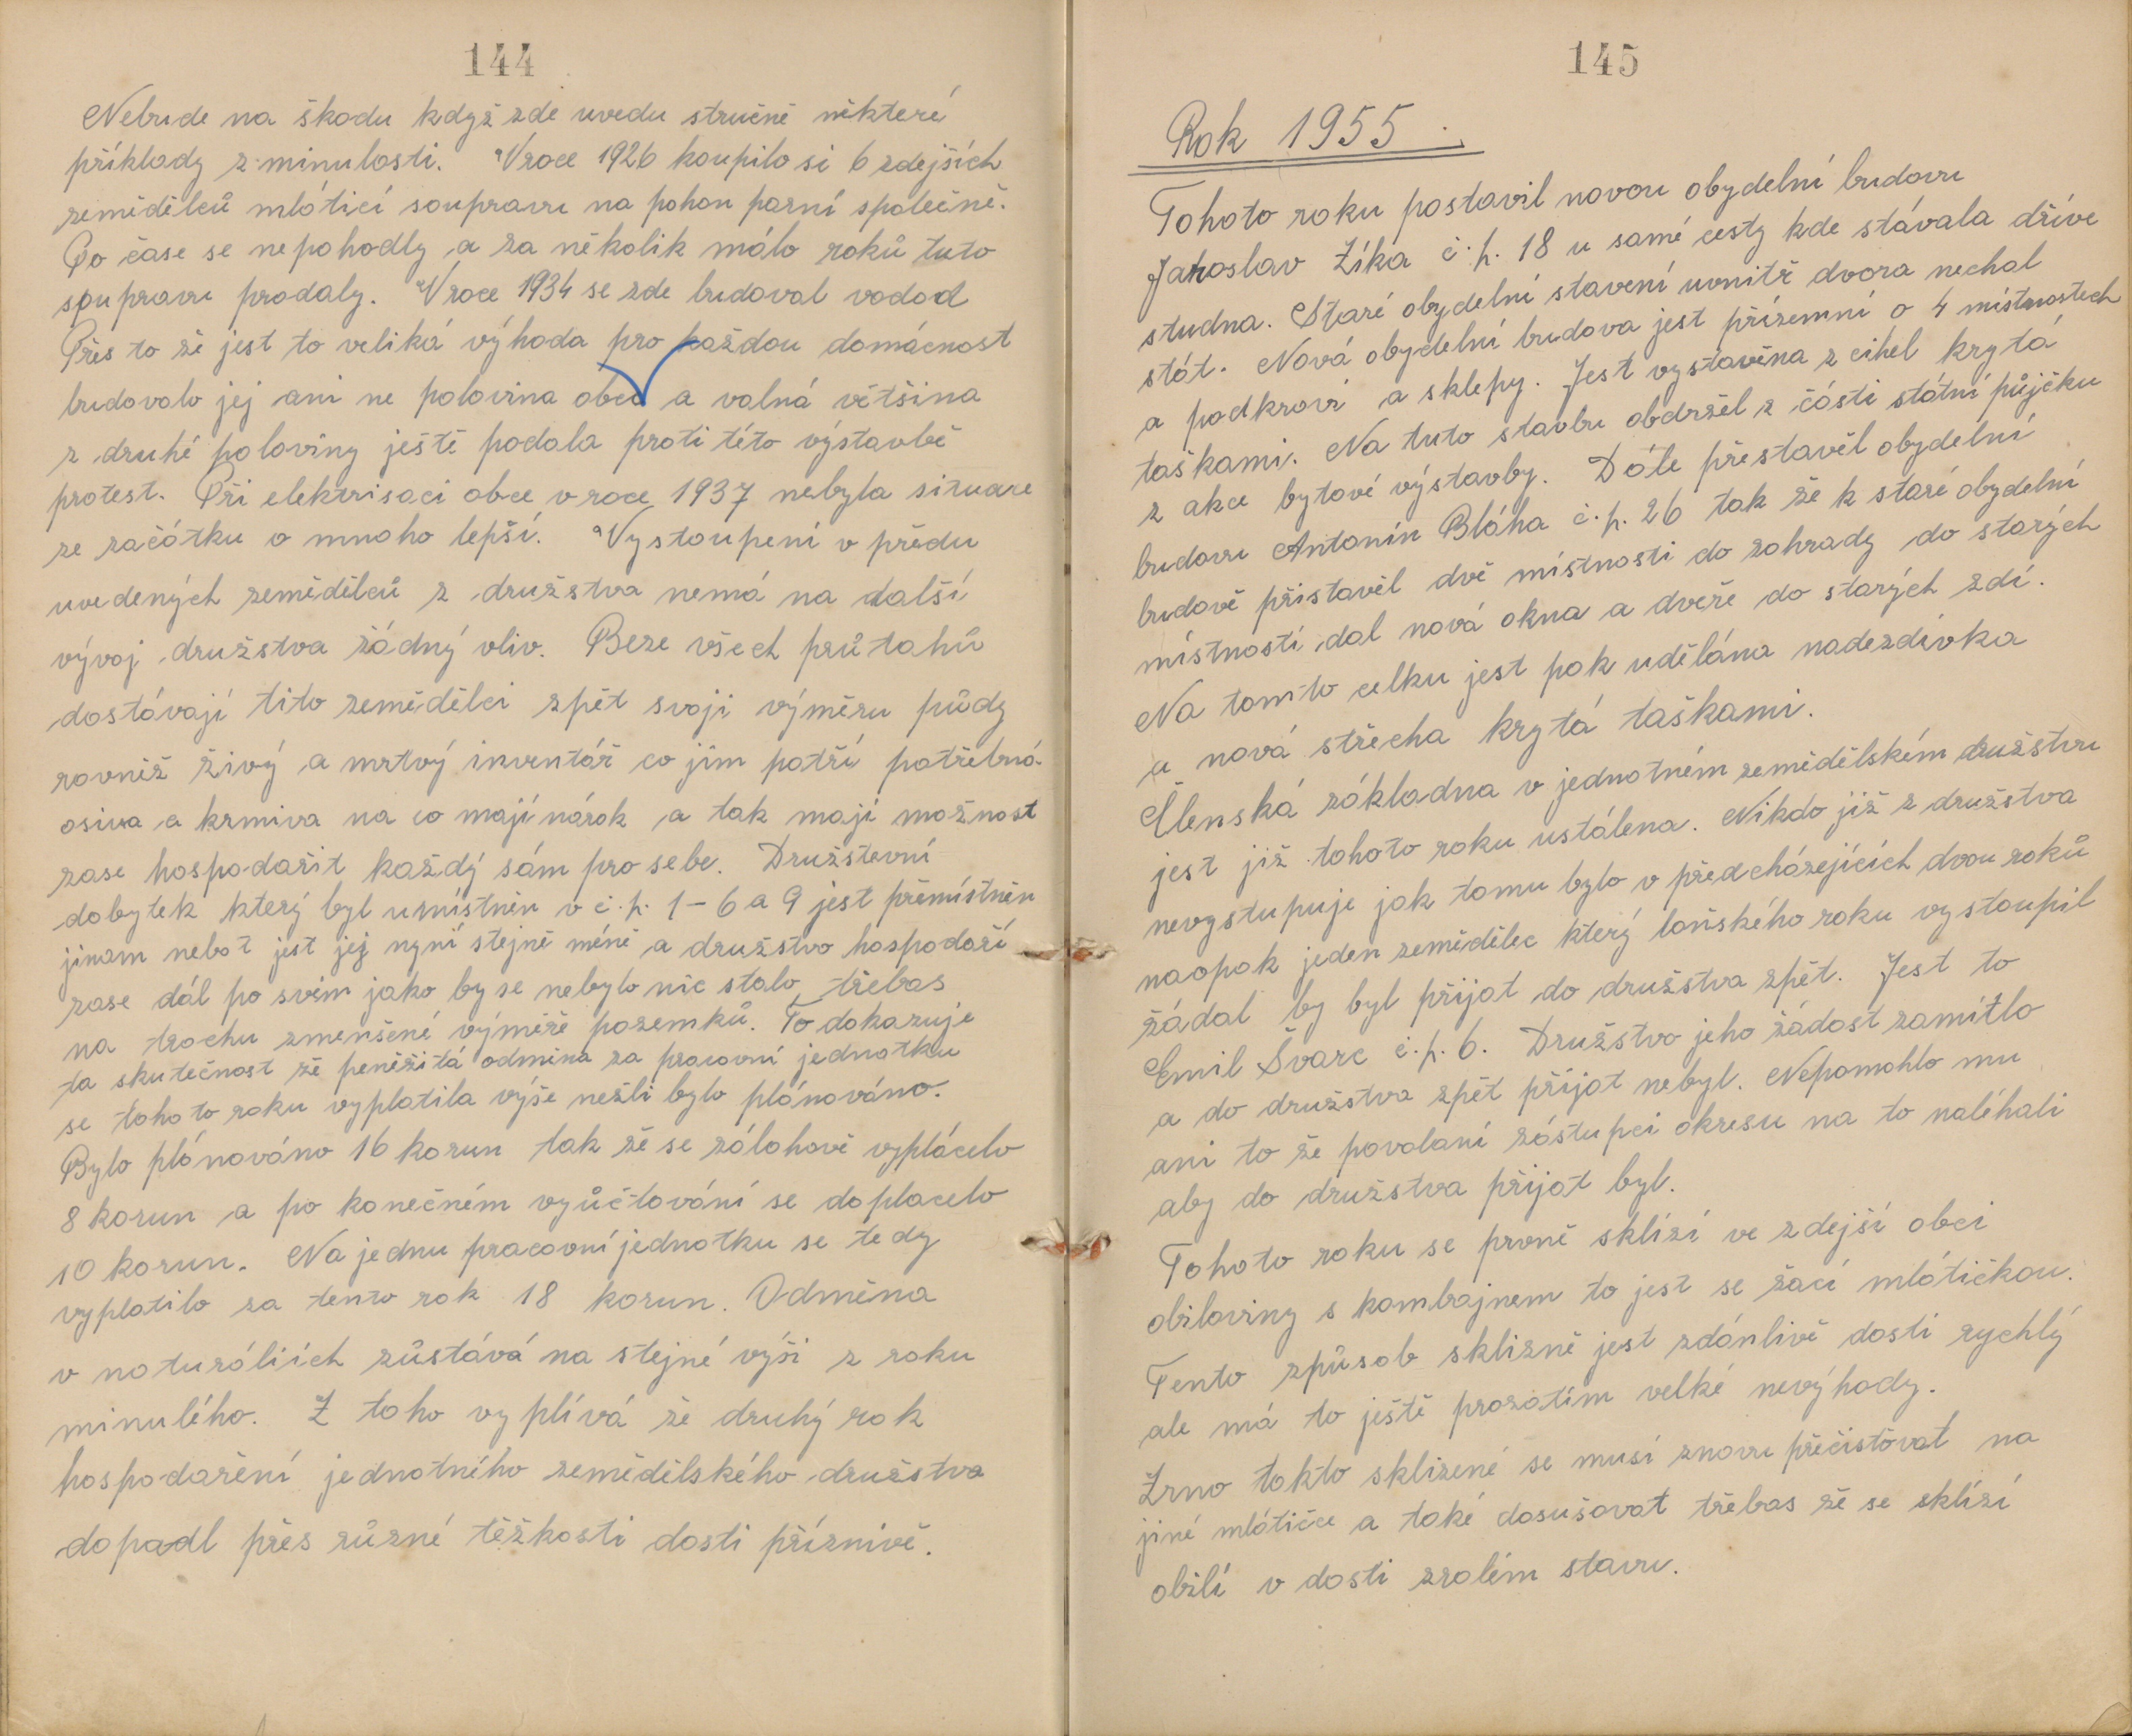 144
Nebude na škodu když zde uvedu stručně některé
příklady z minulosti. V roce 1926 koupilo si 6 zdejších
zemědělců mlátící soupravu na pohon parní společně.
Po čase se nepohodly a za několik málo roků tuto
soupravu prodaly. V roce 1934 se zde budoval vodod
Přes to že jest to veliká výhoda pro každou domácnost
budovalo jej ani ne polovina obce a valná většina
z druhé poloviny ještě podala proti této výstavbě
protest. Při elektrisaci obce v roce 1937 nebyla situace
ze začátku o mnoho lepší. Vystoupení v předu
uvedených zemědělců z družstva nemá na další
vývoj družstva žádný vliv. Beze všech průtahů
dostávají tito zemědělci zpět svoji výměru půdy
rovněž živý a mrtvý inventář co jim patří potřebná
osiva a krmiva na co mají nárok a tak mají možnost
zase hospodařit každý sám pro sebe. Družstevní
dobytek který byl umístněn v č.p. 1-6 a 9 jest přemístněn
jinam nebot jest jej nyní stejně méně a družstvo hospodaří
zase dál po svém jako by se nebylo nic stalo třebas
na trochu zmenšené výměře pozemků. To dokazuje
ta skutečnost že peněžitá odměna za pracovní jednotku
se tohoto roku vyplatila výše nežli bylo plánováno.
Bylo plánováno 16 korun tak že se zálohově vyplácelo
8 korun a po konečném vyůčtování se doplacelo
10 korun. Na jednu pracovní jednotku se tedy
vyplatilo za tento rok 18 korun. Odměna
v naturáliích zůstává na stejné výši z roku
minulého. Z toho vyplívá že druhý rok
hospodaření jednotného zemědělského družstva
dopadl přes různé těžkosti dosti příznivě.
145
Rok 1955.
Tohoto roku postavil novou obydelní budovu
Jaroslav Zíka č.p. 18 u samé cesty kde stávala dříve
studna. Staré obydelní stavení uvnitř dvora nechal
stát. Nová obydelní budova jest přízemní o 4 místnostech
a podkroví a sklepy. Jest vystavěna z cihel krytá
taškami. Na tuto stavbu obdržel z části státní půjčku
z akce bytové výstavby. Dále přestavěl obydelní
budovu Antonín Bláha č.p. 26 tak že k staré obydelní
budově přistavěl dvě místnosti do zahrady do starých
místností dal nová okna a dveře do starých zdí.
Na tomto celku jest pak udělána nadezdívka
a nová střecha krytá taškami.
Členská základna v jednotném zemědělském družstvu
jest již tohoto roku ustálena. Nikdo již z družstva
nevystupuje jak tomu bylo v předcházejících dvou roků
naopak jeden zemědělec který loňského roku vystoupil
žádal by byl přijat do družstva zpět. Jest to
Emil Švarc č.p. 6. Družstvo jeho žádost zamítlo
a do družstva zpět přijat nebyl. Nepomohlo mu
ani to že povolaní zástupci okresu na to naléhali
aby do družstva přijat byl.
Tohoto roku se prvně sklízí ve zdejší obci
obiloviny s kombajnem to jest se žací mlátičkou.
Tento způsob sklizně jest zdánlivě dosti rychlý
ale má to ještě prozatím velké nevýhody.
Zrno takto sklizené se musí znovu přečisťovat na
jiné mlátičce a také dosušovat třebas že se sklízí
obilí v dosti zralém stavu.